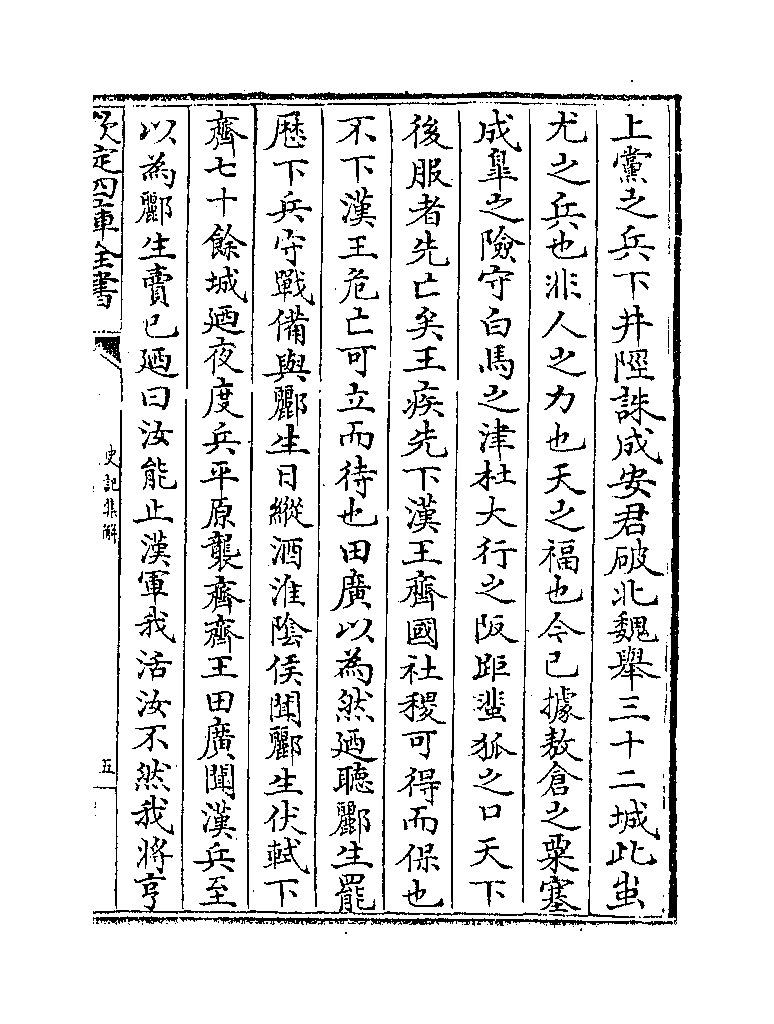 上黨之兵下井陘誅成安君破北魏舉三十二城此蚩
尤之兵也非人之力也天之福也今已據敖倉之粟塞
成臯之險守白馬之津杜大行之阪距蜚狐之口天下
後服者先亡矣王疾先下漢王齊國社稷可得而保也
不下漢王危亡可立而待也田廣以為然廼聽酈生罷
歷下兵守戰備與酈生日縱酒淮隂侯聞酈生伏軾下
齊七十餘城廼夜度兵平原襲齊齊王田廣聞漢兵至
以為酈生賣已廼曰汝能止漢軍我活汝不然我將亨
欽定四庫全書
史記集解
五